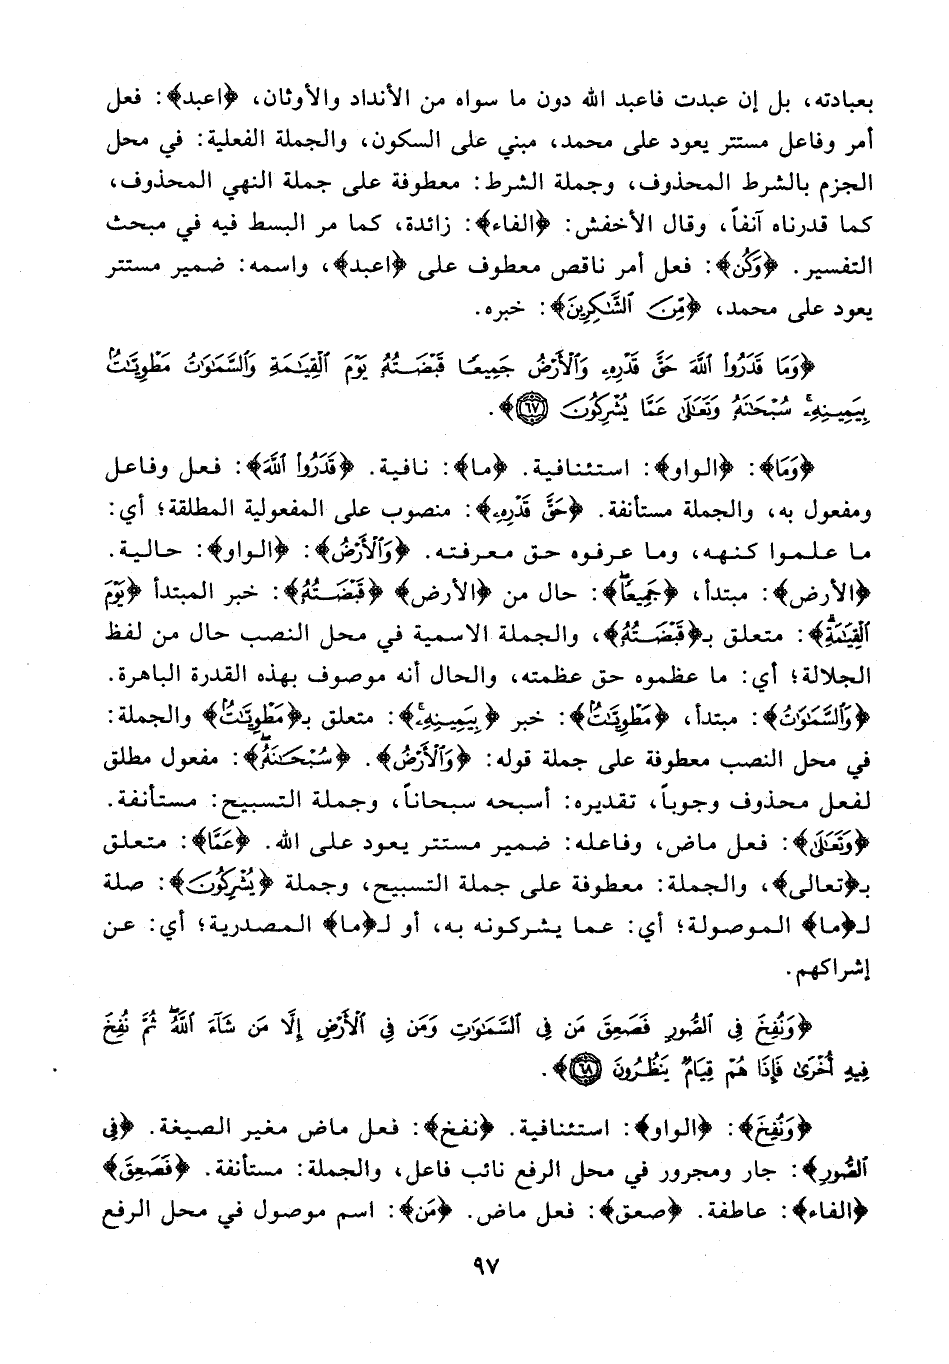 بعبادته، بل إن عبدت فاعبد الله دون ما سواه من الأنداد والأوثان، ﴿اعبد﴾: فعل
أمر وفاعل مستتر يعود على محمد، مبني على السكون، والجملة الفعلية: في محل
الجزم بالشرط المحذوف، وجملة الشرط: معطوفة على جملة النهي المحذوف،
كما قدرناه آنفاً، وقال الأخفش: ﴿الفاء﴾: زائدة، كما مر البسط فيه في مبحث
التفسير. ﴿وَكُن﴾: فعل أمر ناقص معطوف على ﴿اعبد﴾، واسمه: ضمير مستتر
يعود على محمد، ﴿مِّنَ ٱلشَّٰكِرِينَ﴾: خبره.
﴿وَمَا قَدَرُوا۟ ٱللَّهَ حَقَّ قَدْرِهِۦ وَٱلْأَرْضُ جَمِيعًا قَبْضَتُهُۥ يَوْمَ ٱلْقِيَٰمَةِ وَٱلسَّمَٰوَٰتُ مَطْوِيَّٰتٌۢ
بِيَمِينِهِۦ ۚ سُبْحَٰنَهُۥ وَتَعَٰلَىٰ عَمَّا يُشْرِكُونَ ٦٧﴾.
﴿وَمَا﴾: ﴿الواو﴾: استئنافية. ﴿ما﴾: نافية. ﴿قَدَرُوا۟ ٱللَّهَ﴾: فعل وفاعل
ومفعول به، والجملة مستأنفة. ﴿حَقَّ قَدْرِهِۦ﴾: منصوب على المفعولية المطلقة؛ أي:
ما علموا كنهه، وما عرفوه حق معرفته. ﴿وَٱلْأَرْضُ﴾: ﴿الواو﴾: حالية.
﴿الأرض﴾: مبتدأ، ﴿جَمِيعًا﴾: حال من ﴿الأرض﴾ ﴿قَبْضَتُهُۥ﴾: خبر المبتدأ ﴿يَوْمَ
ٱلْقِيَٰمَةِ﴾: متعلق بـ﴿قَبْضَتُهُۥ﴾، والجملة الاسمية في محل النصب حال من لفظ
الجلالة؛ أي: ما عظموه حق عظمته، والحال أنه موصوف بهذه القدرة الباهرة.
﴿وَٱلسَّمَٰوَٰتُ﴾: مبتدأ، ﴿مَطْوِيَّٰتٌۢ﴾: خبر ﴿بِيَمِينِهِۦ ۚ﴾: متعلق بـ﴿مَطْوِيَّٰتٌۢ﴾ والجملة:
في محل النصب معطوفة على جملة قوله: ﴿وَٱلْأَرْضُ﴾. ﴿سُبْحَٰنَهُۥ﴾: مفعول مطلق
لفعل محذوف وجوباً، تقديره: أسبحه سبحاناً، وجملة التسبيح: مستأنفة.
﴿وَتَعَٰلَىٰ﴾: فعل ماض، وفاعله: ضمير مستتر يعود على الله. ﴿عَمَّا﴾: متعلق
بـ﴿تعالى﴾، والجملة: معطوفة على جملة التسبيح، وجملة ﴿يُشْرِكُونَ﴾: صلة
لـ﴿ما﴾ الموصولة؛ أي: عما يشركونه به، أو لـ﴿ما﴾ المصدرية؛ أي: عن
إشراكهم.
﴿وَنُفِخَ فِى ٱلصُّورِ فَصَعِقَ مَن فِى ٱلسَّمَٰوَٰتِ وَمَن فِى ٱلْأَرْضِ إِلَّا مَن شَآءَ ٱللَّهُ ۖ ثُمَّ نُفِخَ
فِيهِ أُخْرَىٰ فَإِذَا هُمْ قِيَامٌ يَنظُرُونَ ٦٨﴾.
﴿وَنُفِخَ﴾: ﴿الواو﴾: استئنافية. ﴿نفخ﴾: فعل ماض مغير الصيغة. ﴿فِى
ٱلصُّورِ﴾: جار ومجرور في محل الرفع نائب فاعل، والجملة: مستأنفة. ﴿فَصَعِقَ﴾
﴿الفاء﴾: عاطفة. ﴿صعق﴾: فعل ماض. ﴿مَن﴾: اسم موصول في محل الرفع
٩٧